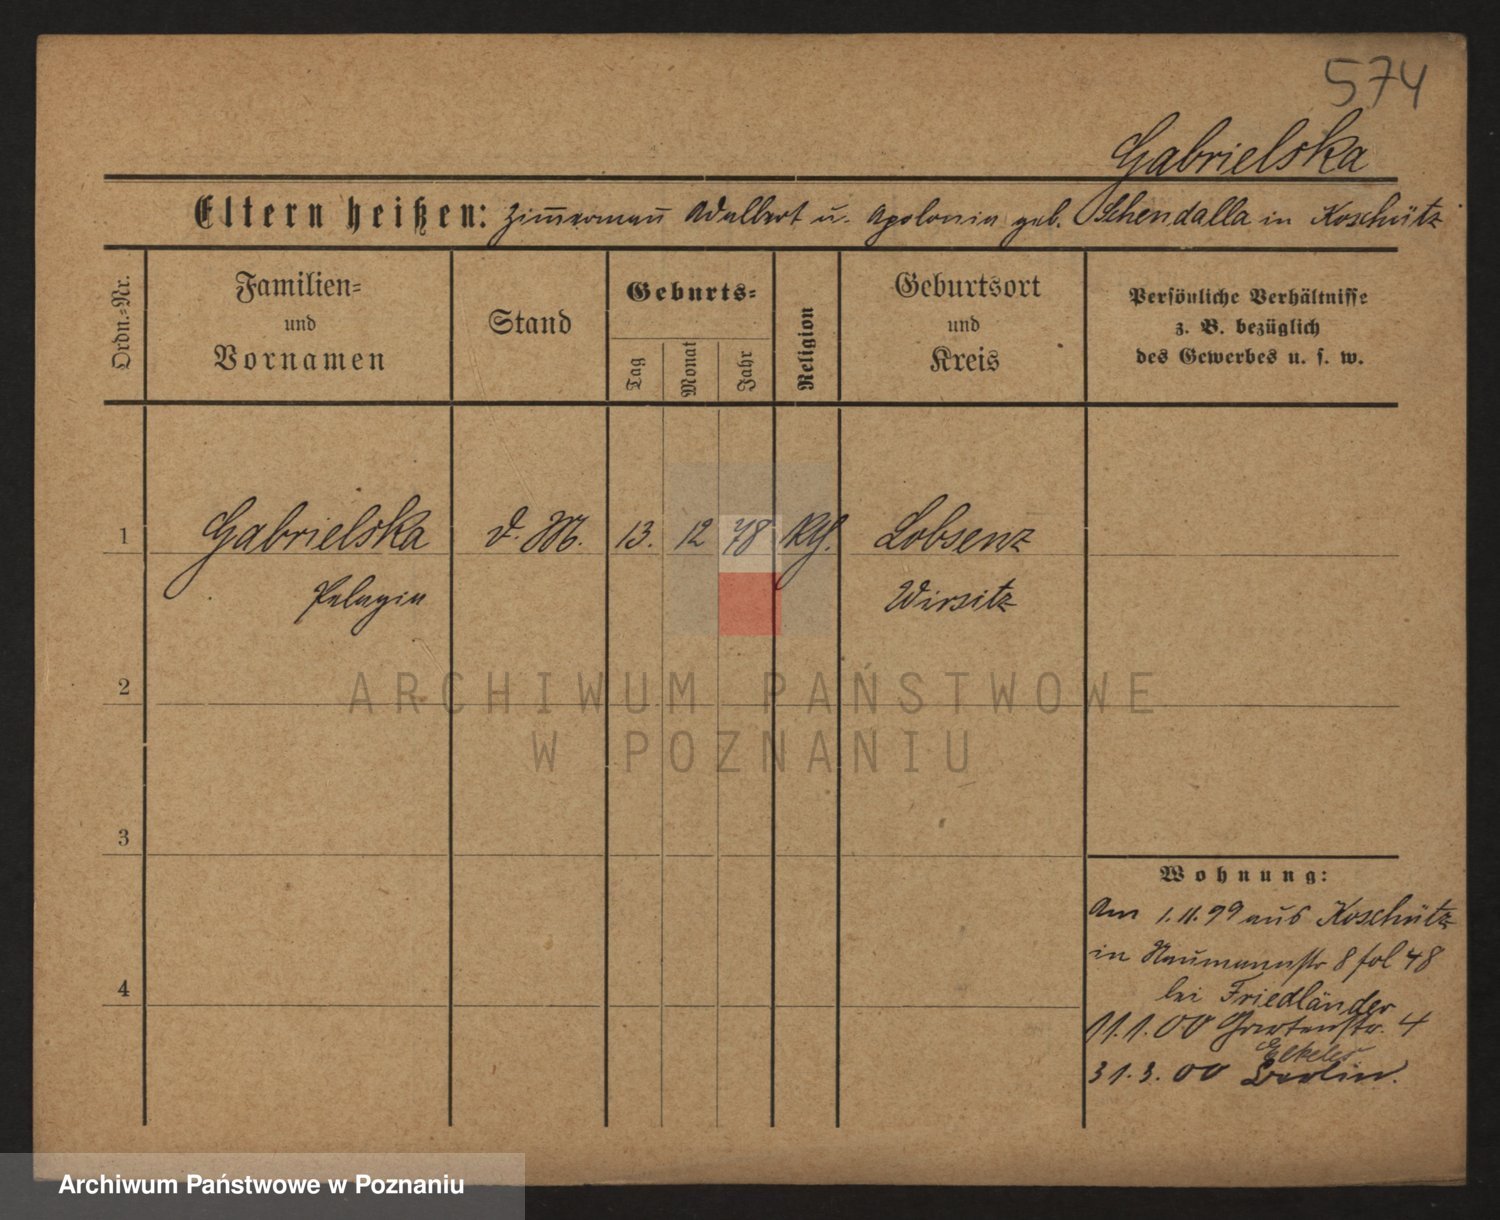 574
Gabrielska
Eltern heißen: Zim̅erman̅ Adalbert u. Apolonia geb. Schendalla in Koschütz
Ordn.=Nr.
Familien=
und
Vornamen
Stand
Geburts=
Tag
Monat
Jahr
Religion
Geburtsort
und
Kreis
Persönliche Verhältnisse
z. B. bezüglich
des Gewerbes u. s. w.
1 Gabrielska d. M. 13. 12 78 Lobsenz
Pelagia Wirsitz
2
ARCHIWUM PAŃSTWOWE
W POZNANIU
3
Wohnung:
Am 1.11.99 aus Koschütz
in Naumannstr 8 fol 48
4
bei Friedländer
11.1.00 Gartenstr. 4
31.3.00 Berlin.
Archiwum Państwowe w Poznaniu